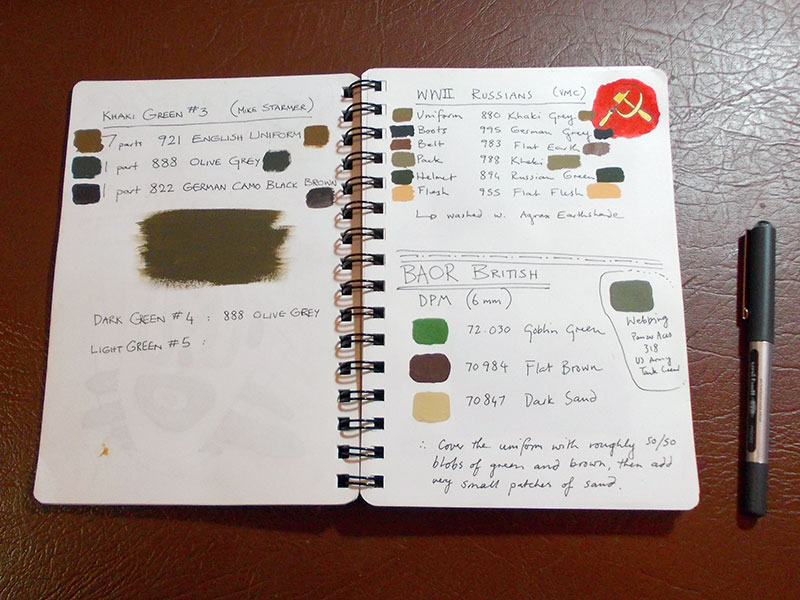 KHAKI GREEN #3 (MIKE STARMER)
7 parts 921 ENGLISH UNIFORM
1 part 888 OLIVE GREY
1 part 822 GERMAN CAMO BLACK BROWN
DARK GREEN #4 : 888 OLIVE GREY
LIGHT GREEN #5 :
WWII RUSSIANS (VMC)
Uniform 880 Khaki Grey
Boots 995 German Grey
Belt 983 Flat Earth
Pack 988 Khaki
Helmet 894 Russian Green
Flesh 955 Flat Flesh
↳ washed w. Agrax Earthshade
BAOR BRITISH
DPM (6mm)
72.030 Goblin Green
70984 Flat Brown
70847 Dark Sand
Webbing
Panzer Aces
318
US Army
Tank Crew
∴ Cover the uniform with roughly 50/50
blobs of green and brown, then add
very small patches of sand.
uni-ball